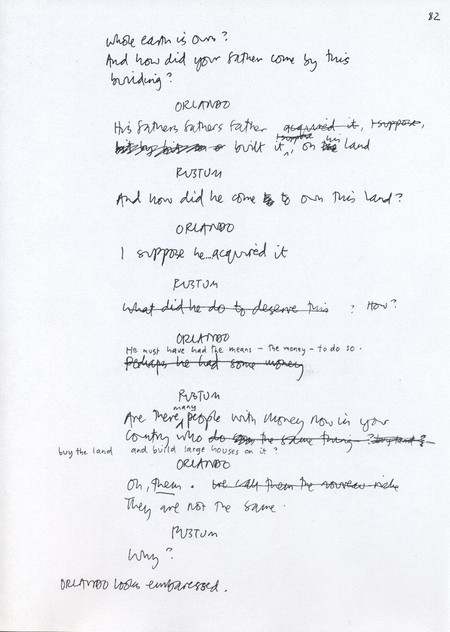 82
whole earth is ours?
And how did your father come by this
building?
ORLANDO
His fathers fathers father acquired it, I suppose,
I suppose his
built it, on the land
RUSTUM
And how did he come to to own this land?
ORLANDO
I suppose he...acquired it
RUSTUM
What did he do to deserve this ? How?
ORLANDO
He must have had the means – the money – to do so.
Perhaps he had some money
RUSTUM
many
Are there people with money now in your
Country who do the same thing - ?
buy the land and build large houses on it?
ORLANDO
Oh, them. we call them the nouveau riche
They are not the same.
RUSTUM
Why?
ORLANDO looks embaressed.